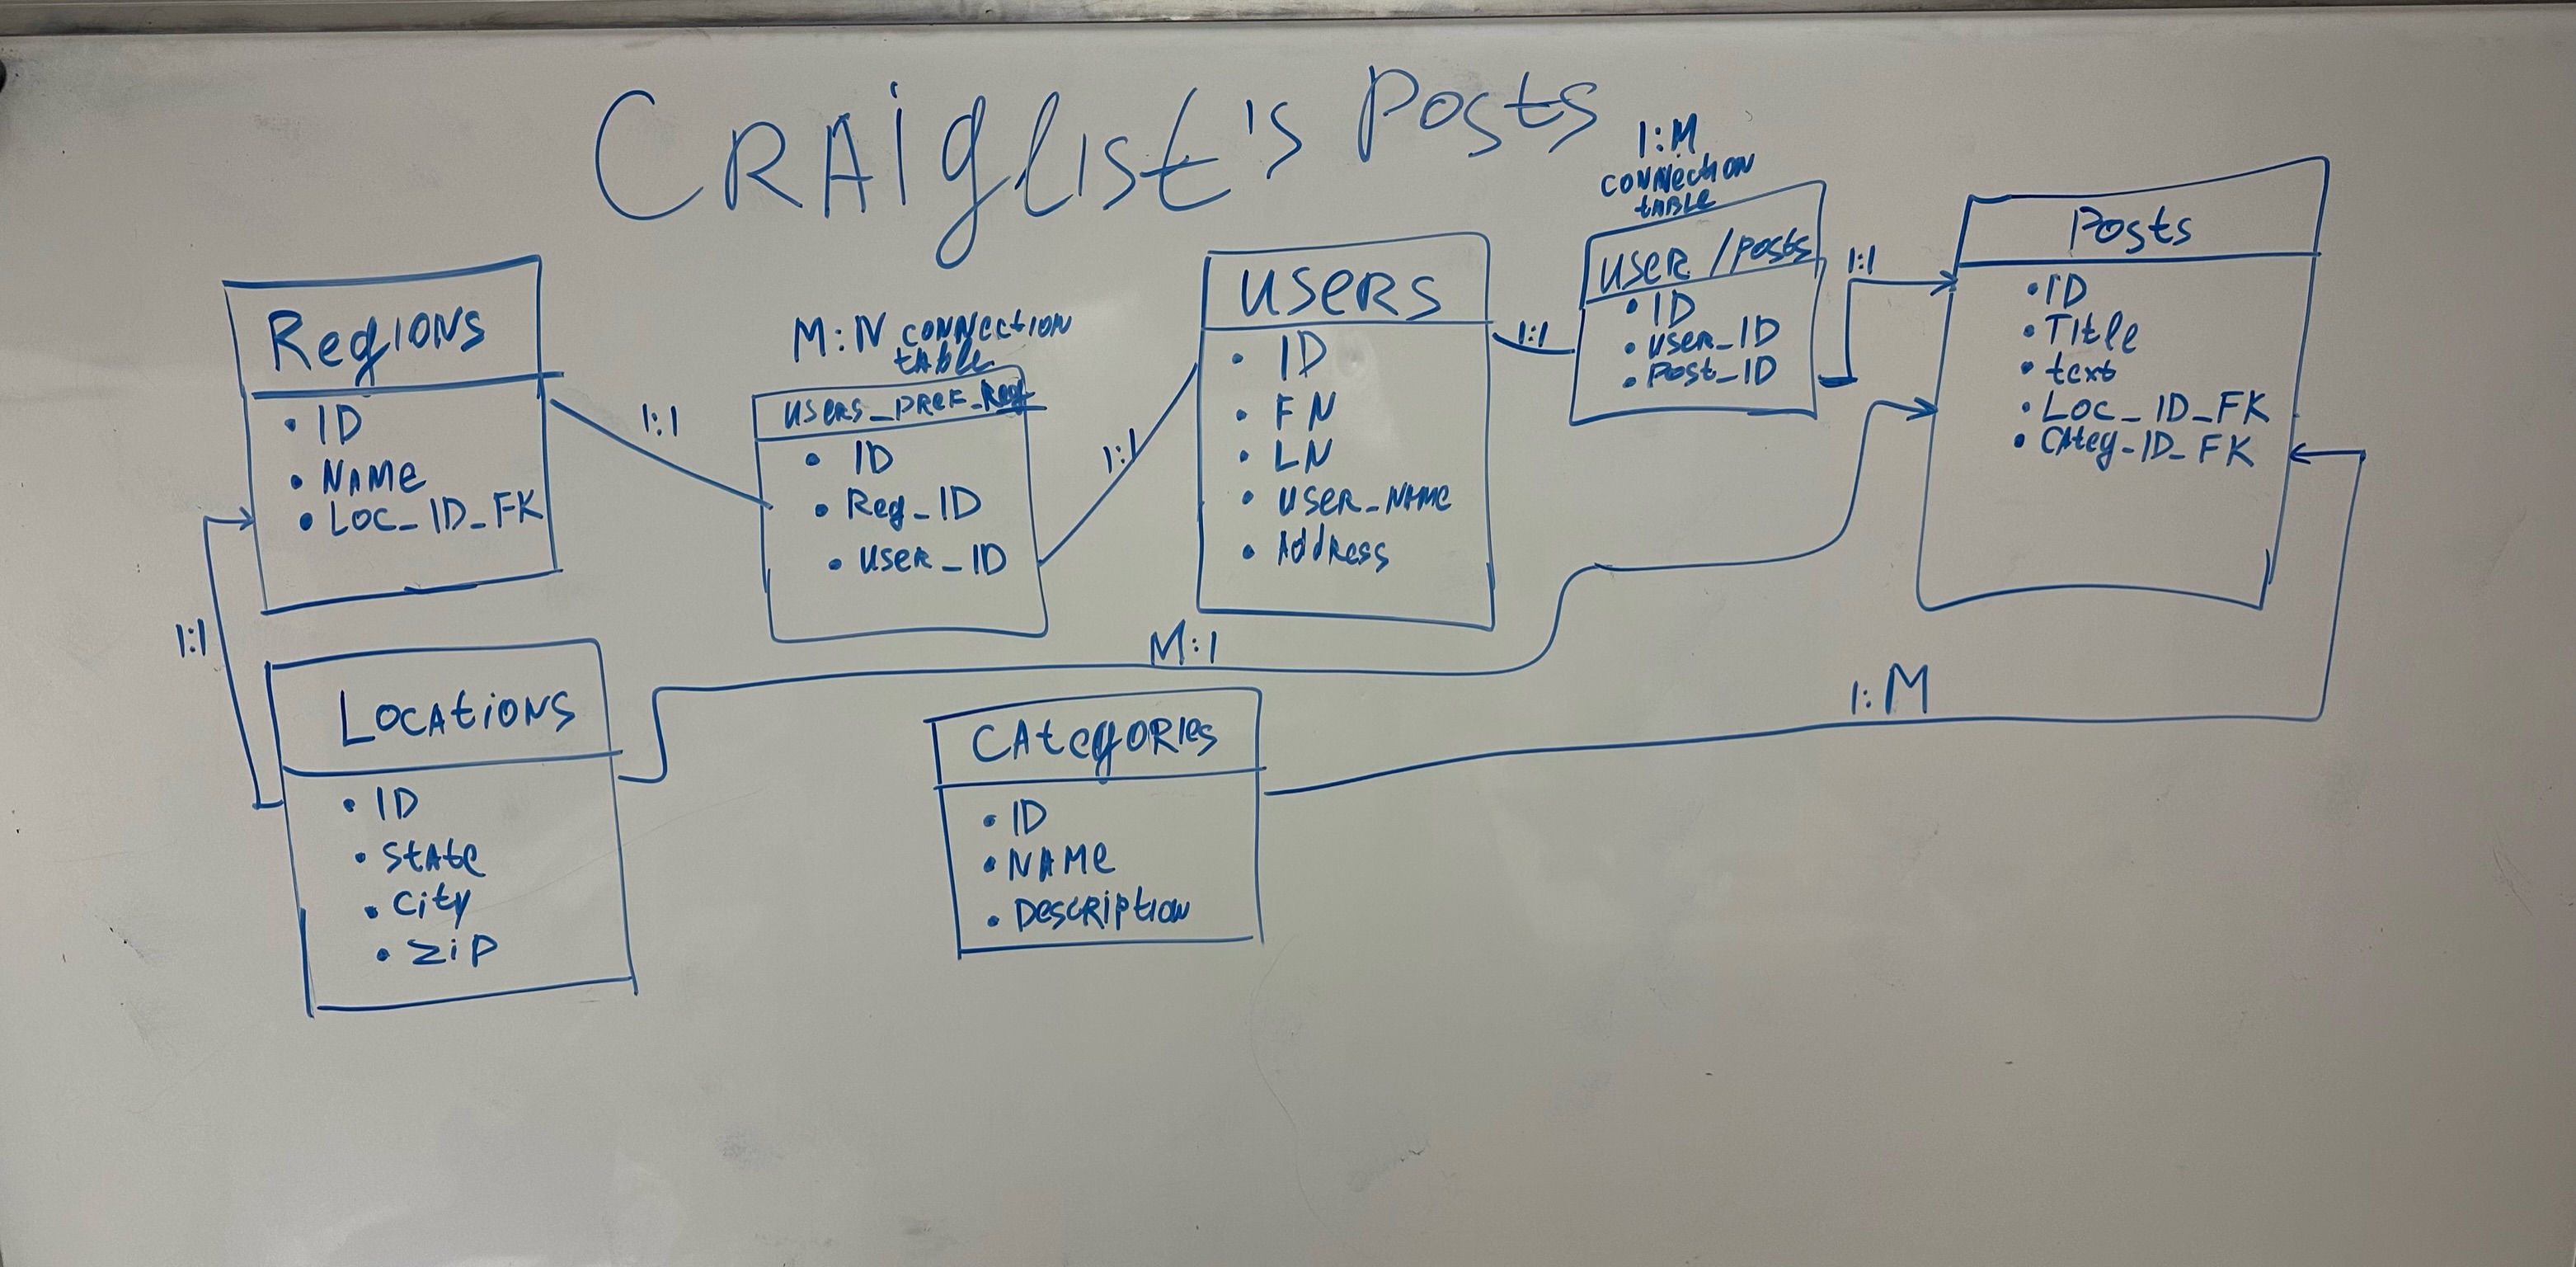 CRAiglist's Posts
Regions
• ID
• NAMe
• Loc_ID_FK
1:1
1:1
M:N connection
table
users_pref_Reg
• ID
• Reg_ID
• user_ID
1:1
users
• ID
• FN
• LN
• user_NAMe
• Address
1:1
1:M
connection
table
user / posts
• ID
• user_ID
• Post_ID
1:1
Posts
• ID
• Title
• text
• Loc_ID_FK
• CAteg_ID_FK
Locations
• ID
• state
• City
• Zip
M:1
CAtegories
• ID
• NAMe
• Description
1:M